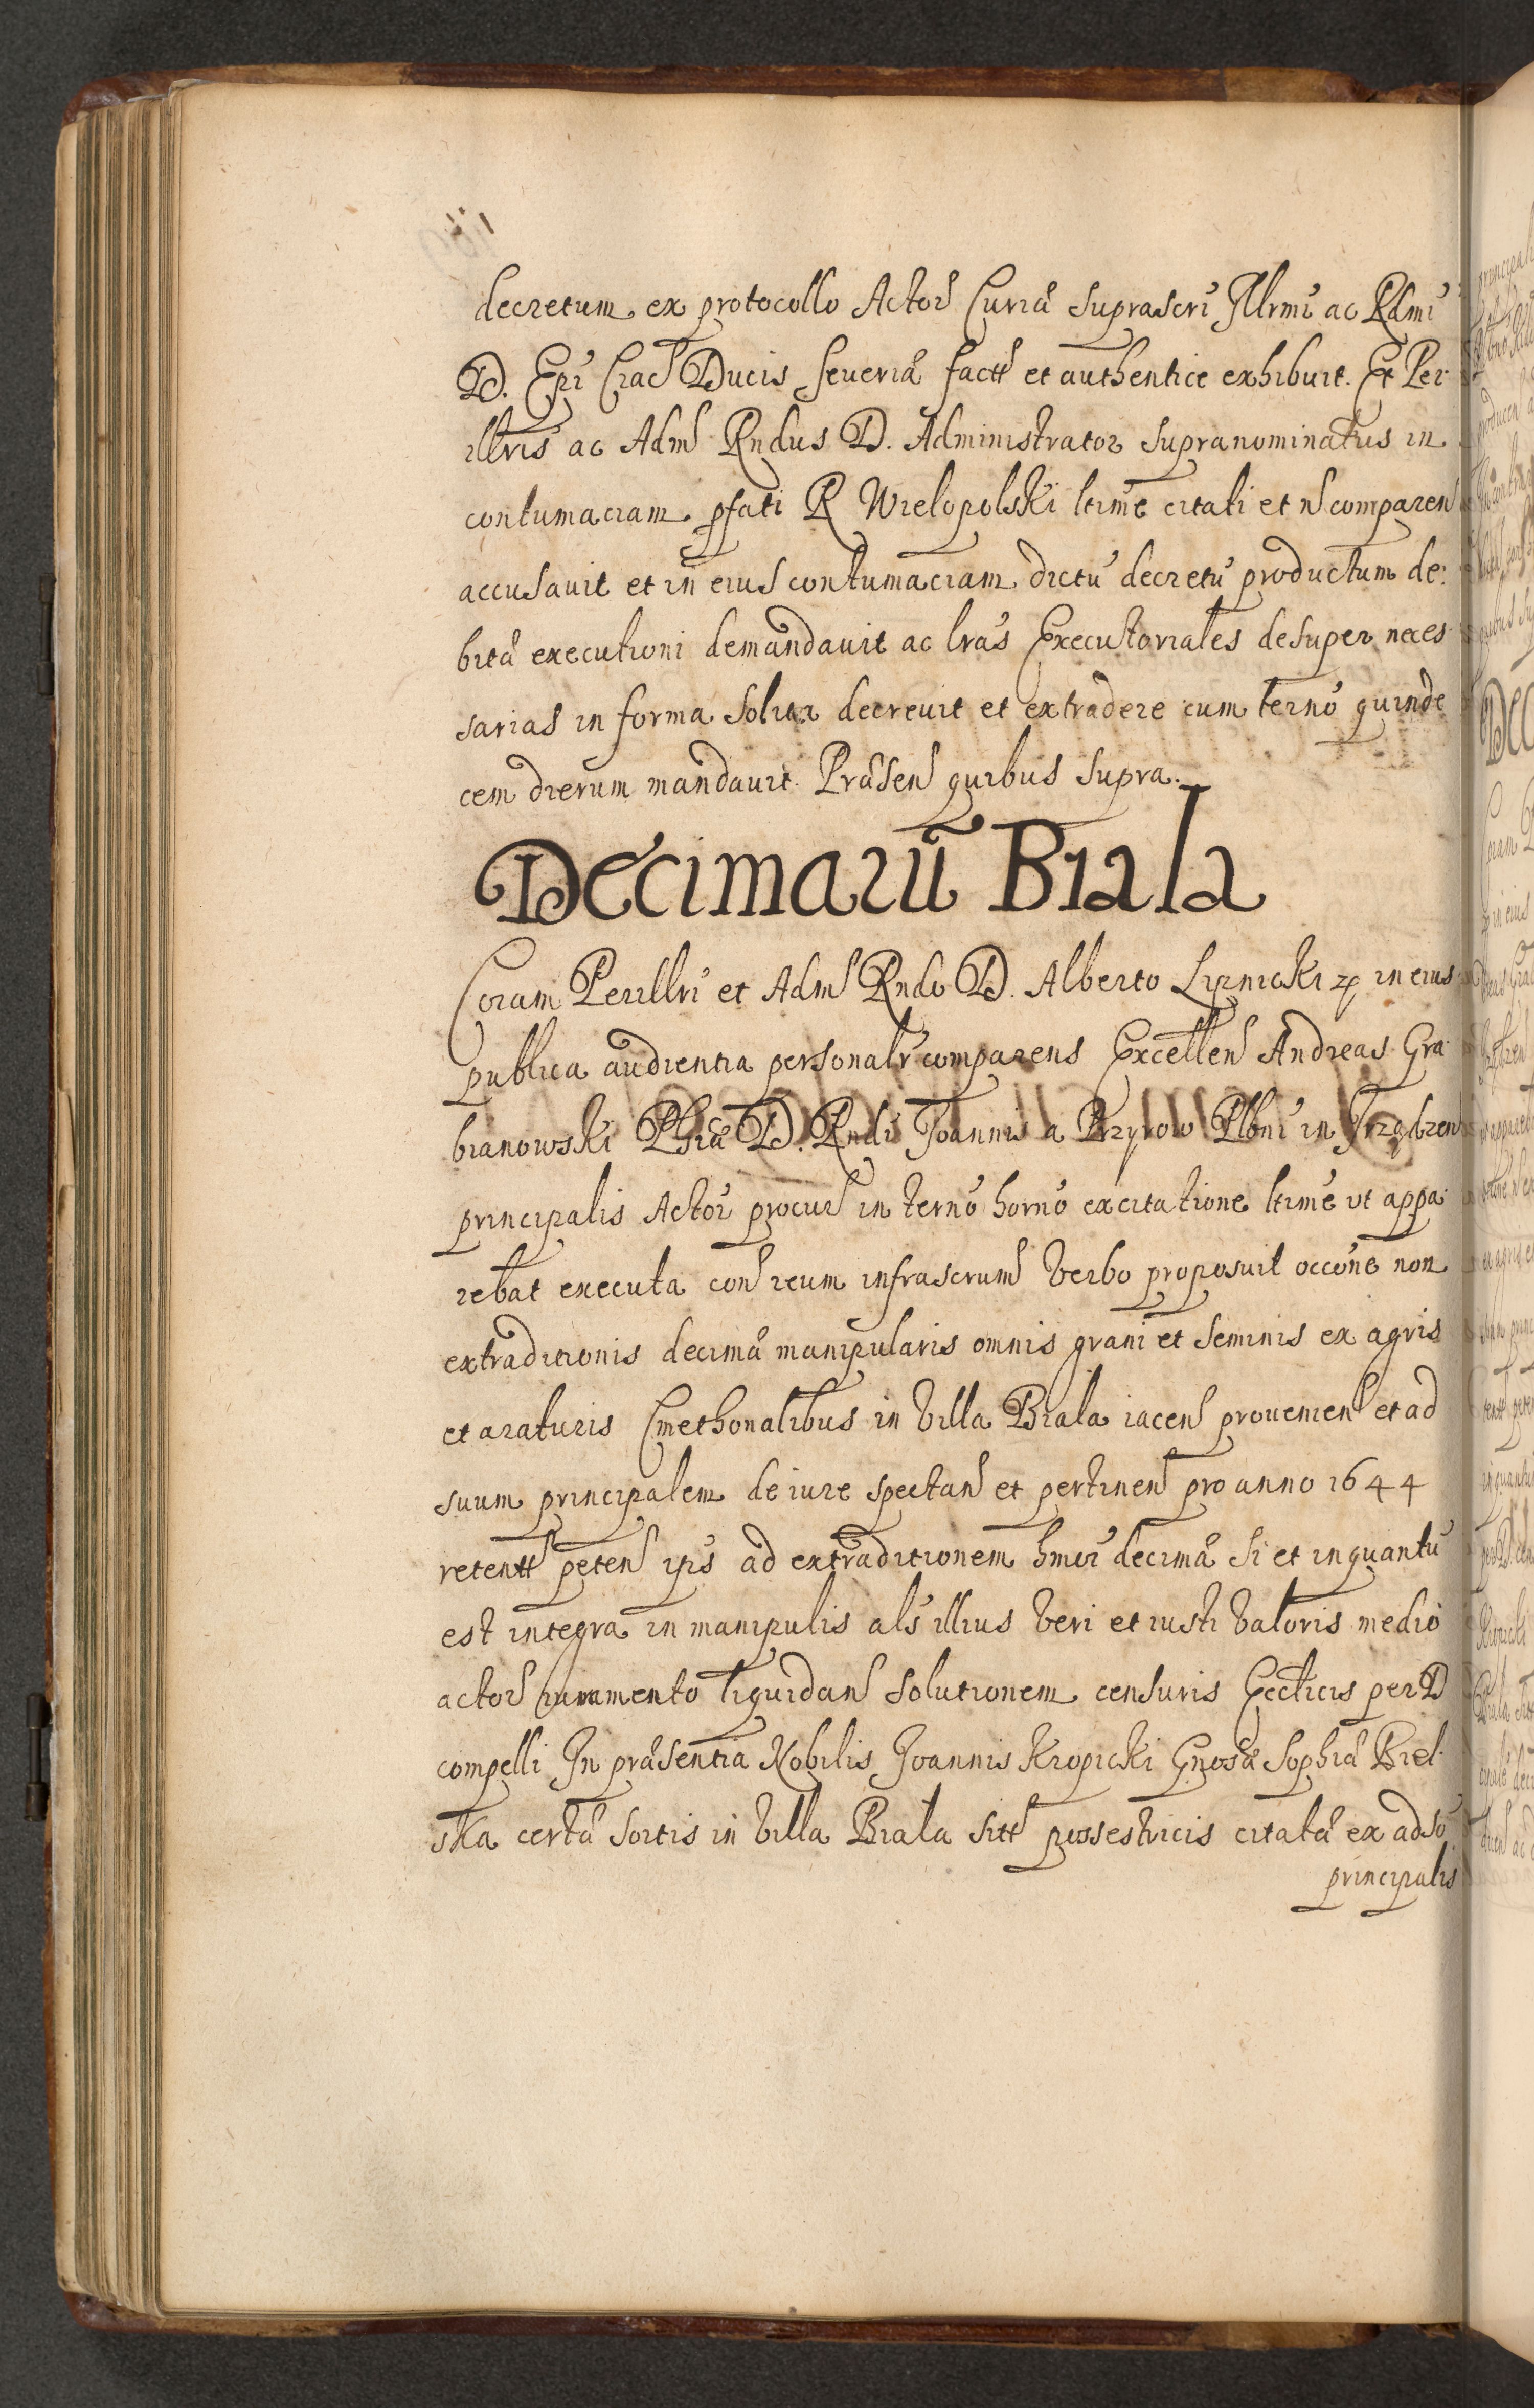 decretum ex protocollo Actor Curiæ suprascri Illrmi ac Rdmi
D. Epi Crac Ducis Seueriæ fact et authentice exhibuit. Et Per
illris ac Adm Rndus D. Administrator supranominatus in
contumaciam pfati R Wielopolski ltime citati et n comparen
accusauit et in eius contumaciam dictu decretu productum de:
bitæ executioni demandauit ac lras Executoriales desuper neces
sarias in forma solita decreuit et extradere cum terno quinde
cem dierum mandauit. Præsen quibus supra.
Decimarū Biala
Coram Perillri et Adm Rndo D. Alberto Lipnicki zp in eius
publica audientia personalr comparens Excellen Andreas Gra
bianowski Phiæ D. Rndi Joannis a Przyrow Plbni in
principalis Actor procur in terno horno ex citatione ltime ut appa
rebat executa con reum infrascrum verbo proposuit occone non
extraditionis decimæ manipularis omnis grani et seminis ex agris
et araturis Cmethonalibus in villa Biala iacen prouenien et ad
suum principalem de iure spectan et pertinen pro anno 1644
retent peten ips ad extraditionem hmoi decimæ si et inquantu
est integra in manipulis als illius veri et iusti valoris medio
actor iuramento liquidan solutionem censuris Eccticis per D
compelli In præsentia Nobilis Joannis Kropicki Gnosæ Sophiæ Biel
ska certæ sortis in villa Biala sitt possestricis citatæ ex adso
principalis